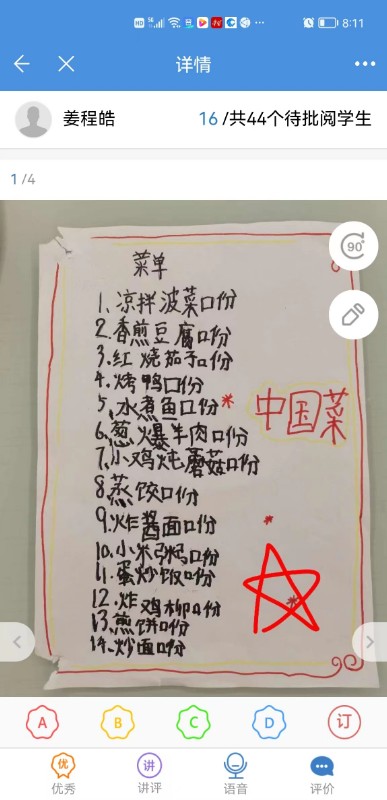 8:11
详情
姜程皓
16 /共44个待批阅学生
1 /4
90
菜单
1、凉拌菠菜口份
2.香煎豆腐口份
3.红烧茄子口份
4.烤鸭口份
5、水煮鱼口份*
中国菜
6.葱爆牛肉口份
7.小鸡炖蘑菇口份
8.蒸饺口份
9.炸酱面口份
10.小米粥口份
11.蛋炒饭口份
12.炸鸡柳口份
13.煎饼口份
14.炒面口份
A
B
C
D
订
优
讲
优秀
讲评
语音
评价